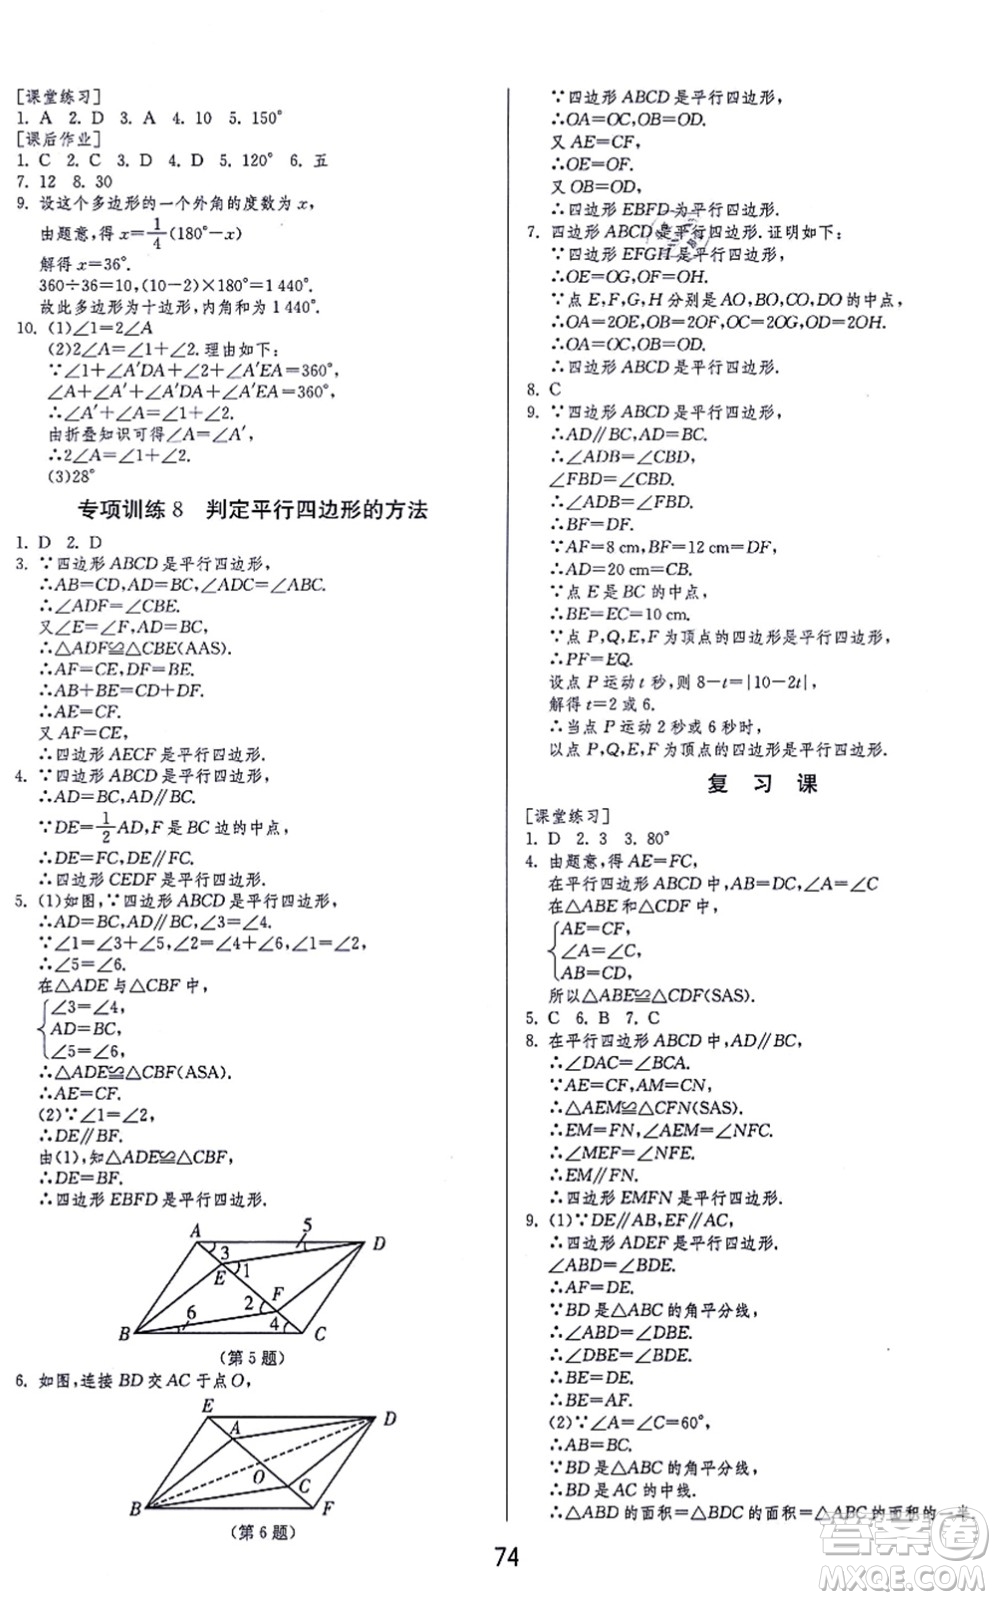 [课堂练习]
1. A  2. D  3. A  4. 10  5. 150°
[课后作业]
1. C  2. C  3. D  4. D  5. 120°  6. 五
7. 12  8. 30
9. 设这个多边形的一个外角的度数为 x,
由题意,得 x=1/4(180°-x)
解得 x=36°.
360÷36=10,(10-2)×180°=1 440°.
故此多边形为十边形,内角和为 1 440°.
10. (1)∠1=2∠A
(2)2∠A=∠1+∠2.理由如下:
∵∠1+∠A′DA+∠2+∠A′EA=360°,
∠A+∠A′+∠A′DA+∠A′EA=360°,
∴∠A′+∠A=∠1+∠2.
由折叠知识可得∠A=∠A′,
∴2∠A=∠1+∠2.
(3)28°
专项训练 8 判定平行四边形的方法
1. D  2. D
3. ∵四边形 ABCD 是平行四边形,
∴AB=CD,AD=BC,∠ADC=∠ABC.
∴∠ADF=∠CBE.
又∠E=∠F,AD=BC,
∴△ADF≌△CBE(AAS).
∴AF=CE,DF=BE.
∴AB+BE=CD+DF.
∴AE=CF.
又 AF=CE,
∴四边形 AECF 是平行四边形.
4. ∵四边形 ABCD 是平行四边形,
∴AD=BC,AD∥BC.
∵DE=1/2AD,F 是 BC 边的中点,
∴DE=FC,DE∥FC.
∴四边形 CEDF 是平行四边形.
5. (1)如图,∵四边形 ABCD 是平行四边形,
∴AD=BC,AD∥BC,∠3=∠4.
∵∠1=∠3+∠5,∠2=∠4+∠6,∠1=∠2,
∴∠5=∠6.
在△ADE 与△CBF 中,
∠3=∠4,
AD=BC,
∠5=∠6,
∴△ADE≌△CBF(ASA).
∴AE=CF.
(2)∵∠1=∠2,
∴DE∥BF.
由(1),知△ADE≌△CBF,
∴DE=BF.
∴四边形 EBFD 是平行四边形.
A 3 5 D
E 1
2 F
B 6 4 C
(第 5 题)
6. 如图,连接 BD 交 AC 于点 O,
E D
A
O
C
B F
(第 6 题)
∵四边形 ABCD 是平行四边形,
∴OA=OC,OB=OD.
又 AE=CF,
∴OE=OF.
又 OB=OD,
∴四边形 EBFD 为平行四边形.
7. 四边形 ABCD 是平行四边形.证明如下:
∵四边形 EFGH 是平行四边形,
∴OE=OG,OF=OH.
∵点 E,F,G,H 分别是 AO,BO,CO,DO 的中点,
∴OA=2OE,OB=2OF,OC=2OG,OD=2OH.
∴OA=OC,OB=OD.
∴四边形 ABCD 是平行四边形.
8. C
9. ∵四边形 ABCD 是平行四边形,
∴AD∥BC,AD=BC.
∴∠ADB=∠CBD.
∠FBD=∠CBD,
∴∠FBD=∠ADB.
∴BF=DF.
∵AF=8 cm,BF=12 cm=DF,
∴AD=20 cm=CB.
∵点 E 是 BC 的中点,
∴BE=EC=10 cm.
∵点 P,Q,E,F 为顶点的四边形是平行四边形,
∴PF=EQ.
设点 P 运动 t 秒,则 8-t=|10-2t|,
解得 t=2 或 6.
∴当点 P 运动 2 秒或 6 秒时,
以点 P,Q,E,F 为顶点的四边形是平行四边形.
复 习 课
[课堂练习]
1. D  2. 3  3. 80°
4. 由题意,得 AE=FC,
在平行四边形 ABCD 中,AB=DC,∠A=∠C
在△ABE 和△CDF 中,
AE=CF,
∠A=∠C,
AB=CD,
所以△ABE≌△CDF(SAS).
5. C  6. B  7. C
8. 在平行四边形 ABCD 中,AD∥BC,
∴∠DAC=∠BCA.
∵AE=CF,AM=CN,
∴△AEM≌△CFN(SAS).
∴EM=FN,∠AEM=∠NFC.
∴∠MEF=∠NFE.
∴EM∥FN.
∴四边形 EMFN 是平行四边形.
9. (1)∵DE∥AB,EF∥AC,
∴四边形 ADEF 是平行四边形.
∠ABD=∠BDE.
∴AF=DE.
∵BD 是△ABC 的角平分线,
∴∠ABD=∠DBE.
∴∠DBE=∠BDE.
∴BE=DE.
∴BE=AF.
(2)∵∠A=∠C=60°,
∴AB=BC.
∵BD 是△ABC 的角平分线,
∴BD 是 AC 的中线.
∴△ABD 的面积=△BDC 的面积=△ABC 的面积的一半.
74
答案圈
MXQE.COM